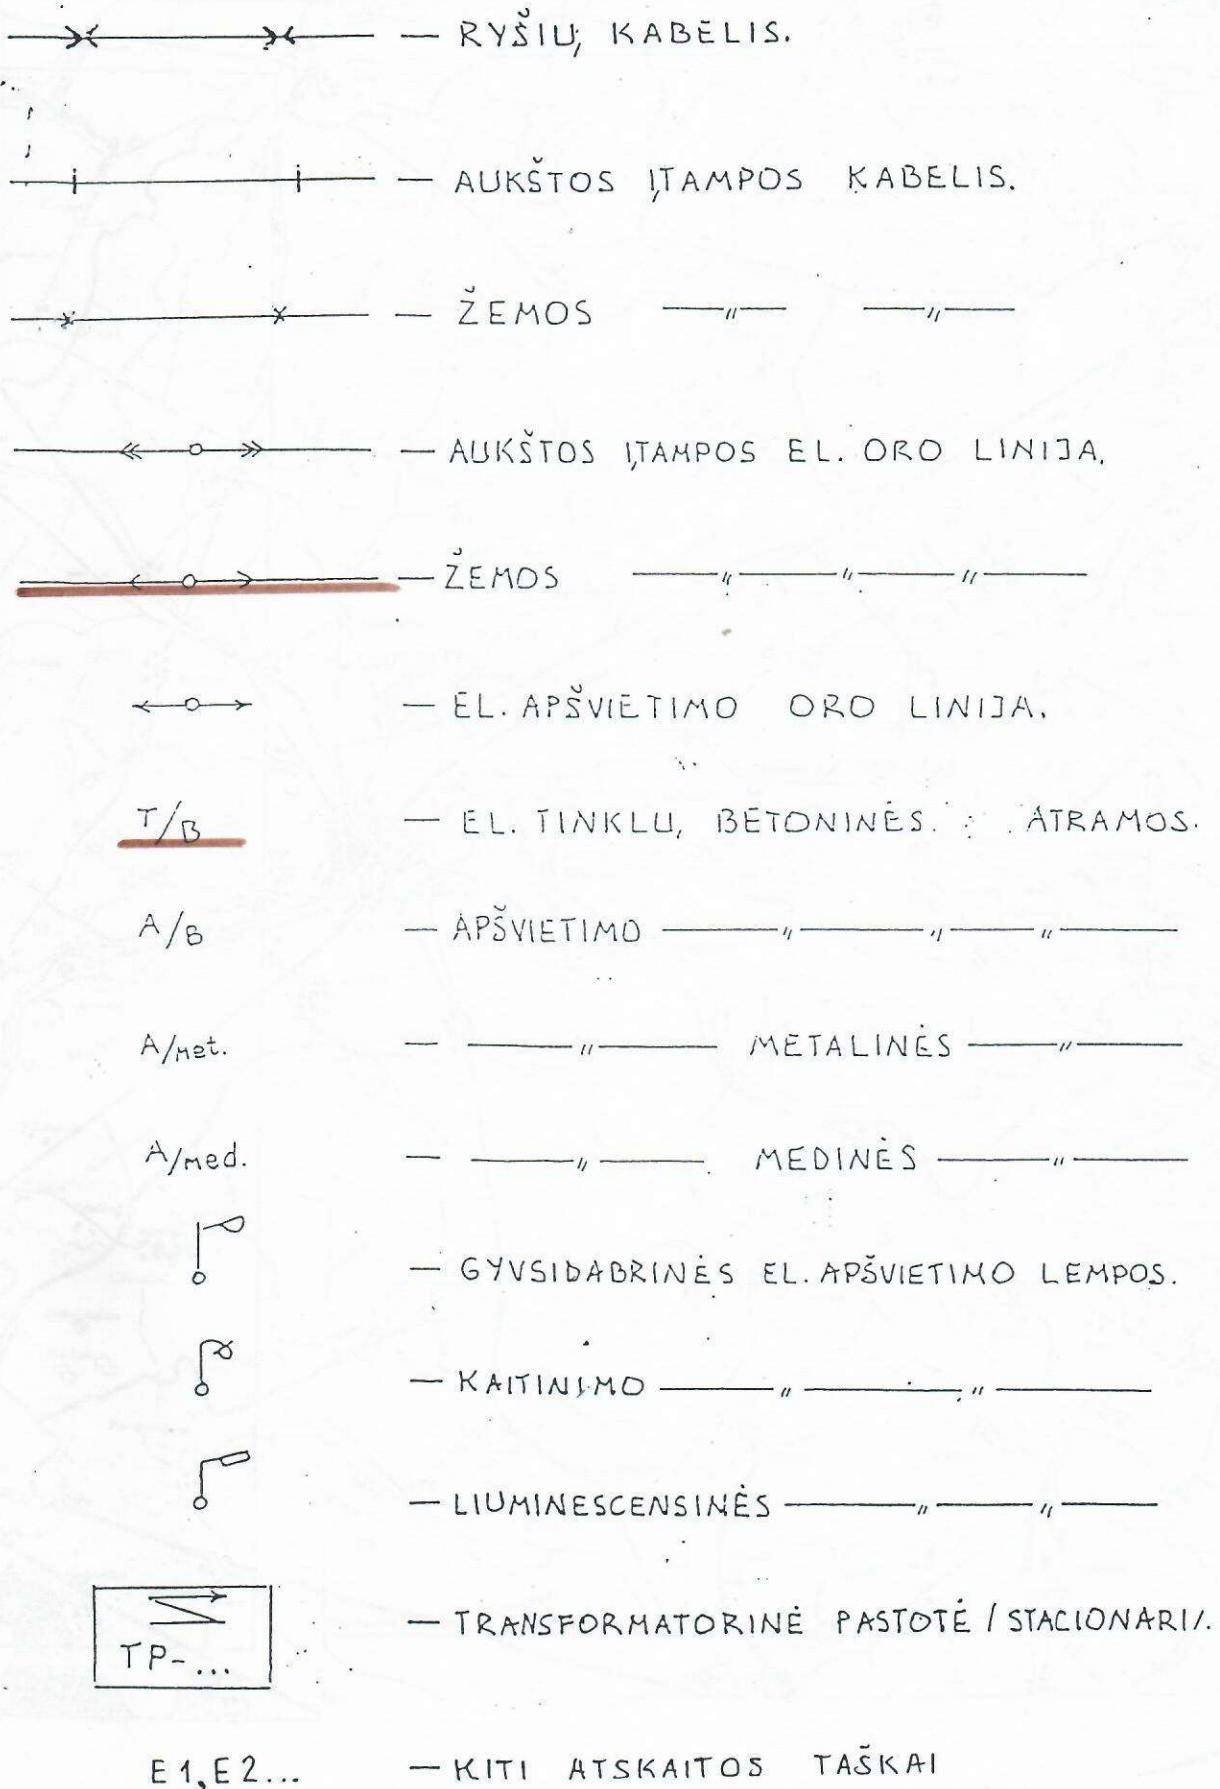 — RYŠIŲ KABELIS.
— AUKŠTOS ĮTAMPOS KABELIS.
— ŽEMOS —〃— —〃—
— AUKŠTOS ĮTAMPOS EL. ORO LINIJA.
— ŽEMOS —〃—〃—〃—
— EL. APŠVIETIMO ORO LINIJA.
T/B — EL. TINKLŲ BETONINĖS ATRAMOS.
A/B — APŠVIETIMO —〃—〃—〃—
A/met. — —〃— METALINĖS —〃—
A/med. — —〃— MEDINĖS —〃—
— GYVSIDABRINĖS EL. APŠVIETIMO LEMPOS.
— KAITINIMO —〃—〃—
— LIUMINESCENSINĖS —〃—〃—
TP-... — TRANSFORMATORINĖ PASTOTĖ / STACIONARI/.
E1, E2... — KITI ATSKAITOS TAŠKAI